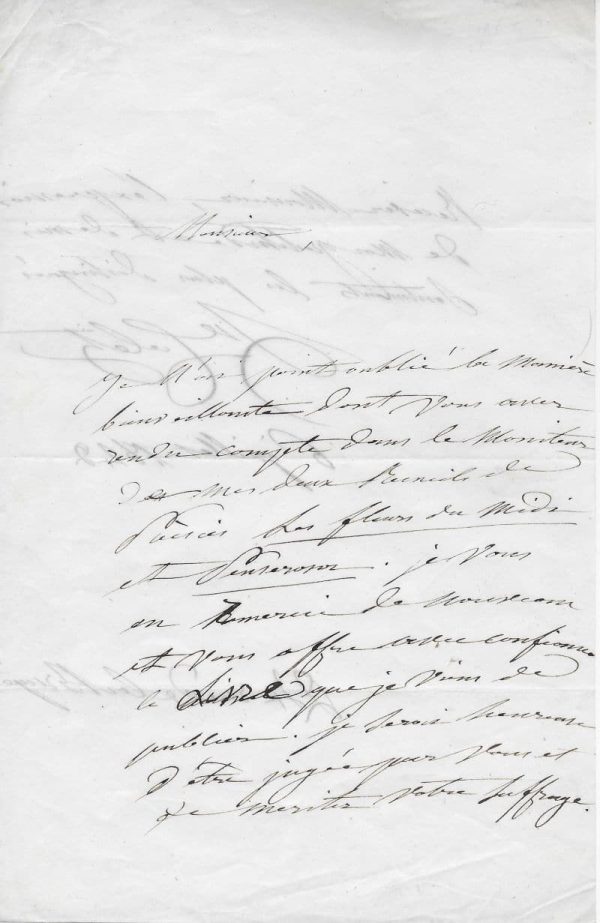 Monsieur,
Je n'ai point oublié la manière
bienveillante dont vous avez
rendu compte dans le Moniteur
de mes deux Recueils de
Poésies Les fleurs du Midi
et Penserosa. je vous
en remercie de nouveau
et vous offre avec confiance
le Livre que je viens de
publier. je serois heureuse
d'être jugée par vous et
de meriter votre suffrage.